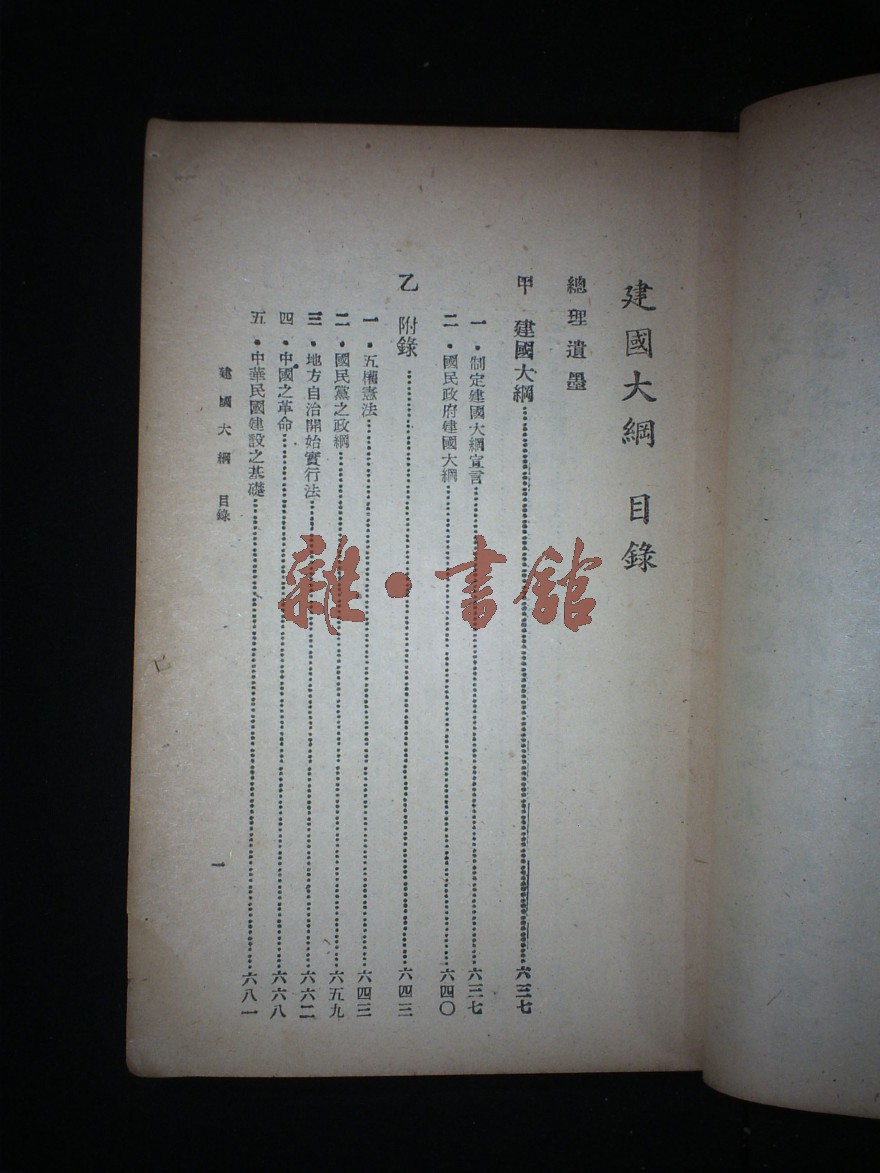 建國大綱 目錄
總理遺墨
甲 建國大綱……六三七
一・制定建國大綱宣言……六三七
二・國民政府建國大綱……六四〇
乙 附錄……六四三
一・五權憲法……六四三
二・國民黨之政綱……六五九
三・地方自治開始實行法……六六二
四・中國之革命……六六八
五・中華民國建設之基礎……六八一
建國大綱 目錄
一
雜・書館